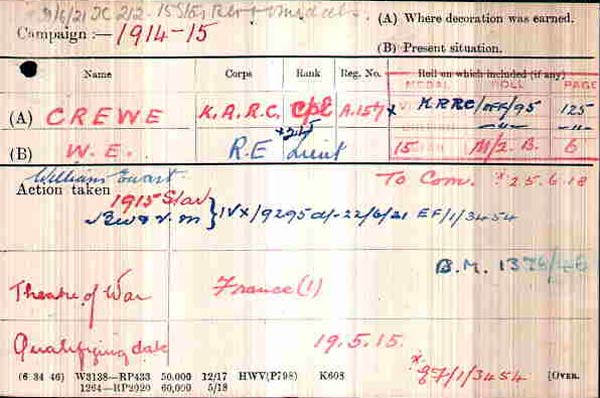 9/6/21
Campaign :— 1914-15
(A) Where decoration was earned.
(B) Present situation.
Name Corps Rank Reg. No. Roll on which included (if any)
MEDAL ROLL PAGE
(A) CREWE K.R.R.C. Cpl A.157 x K.RRC/OFF/95 125
-"- -"-
(B) W.E. R.E. Lieut 15 M/2.B. 6
William Ewart
Action taken To Com. x 25.6.18
1915 Star
B.W. & V.M } IVX/9295 d/- 22/6/21 EF/1/3454
B.M. 1376/46
Theatre of War France (1)
Qualifying date 19.5.15.
x EF/1/3454
(6 34 46) W3138—RP433 50,000 12/17 HWV(P798) K608 [OVER.
1264—RP2020 60,000 5/18